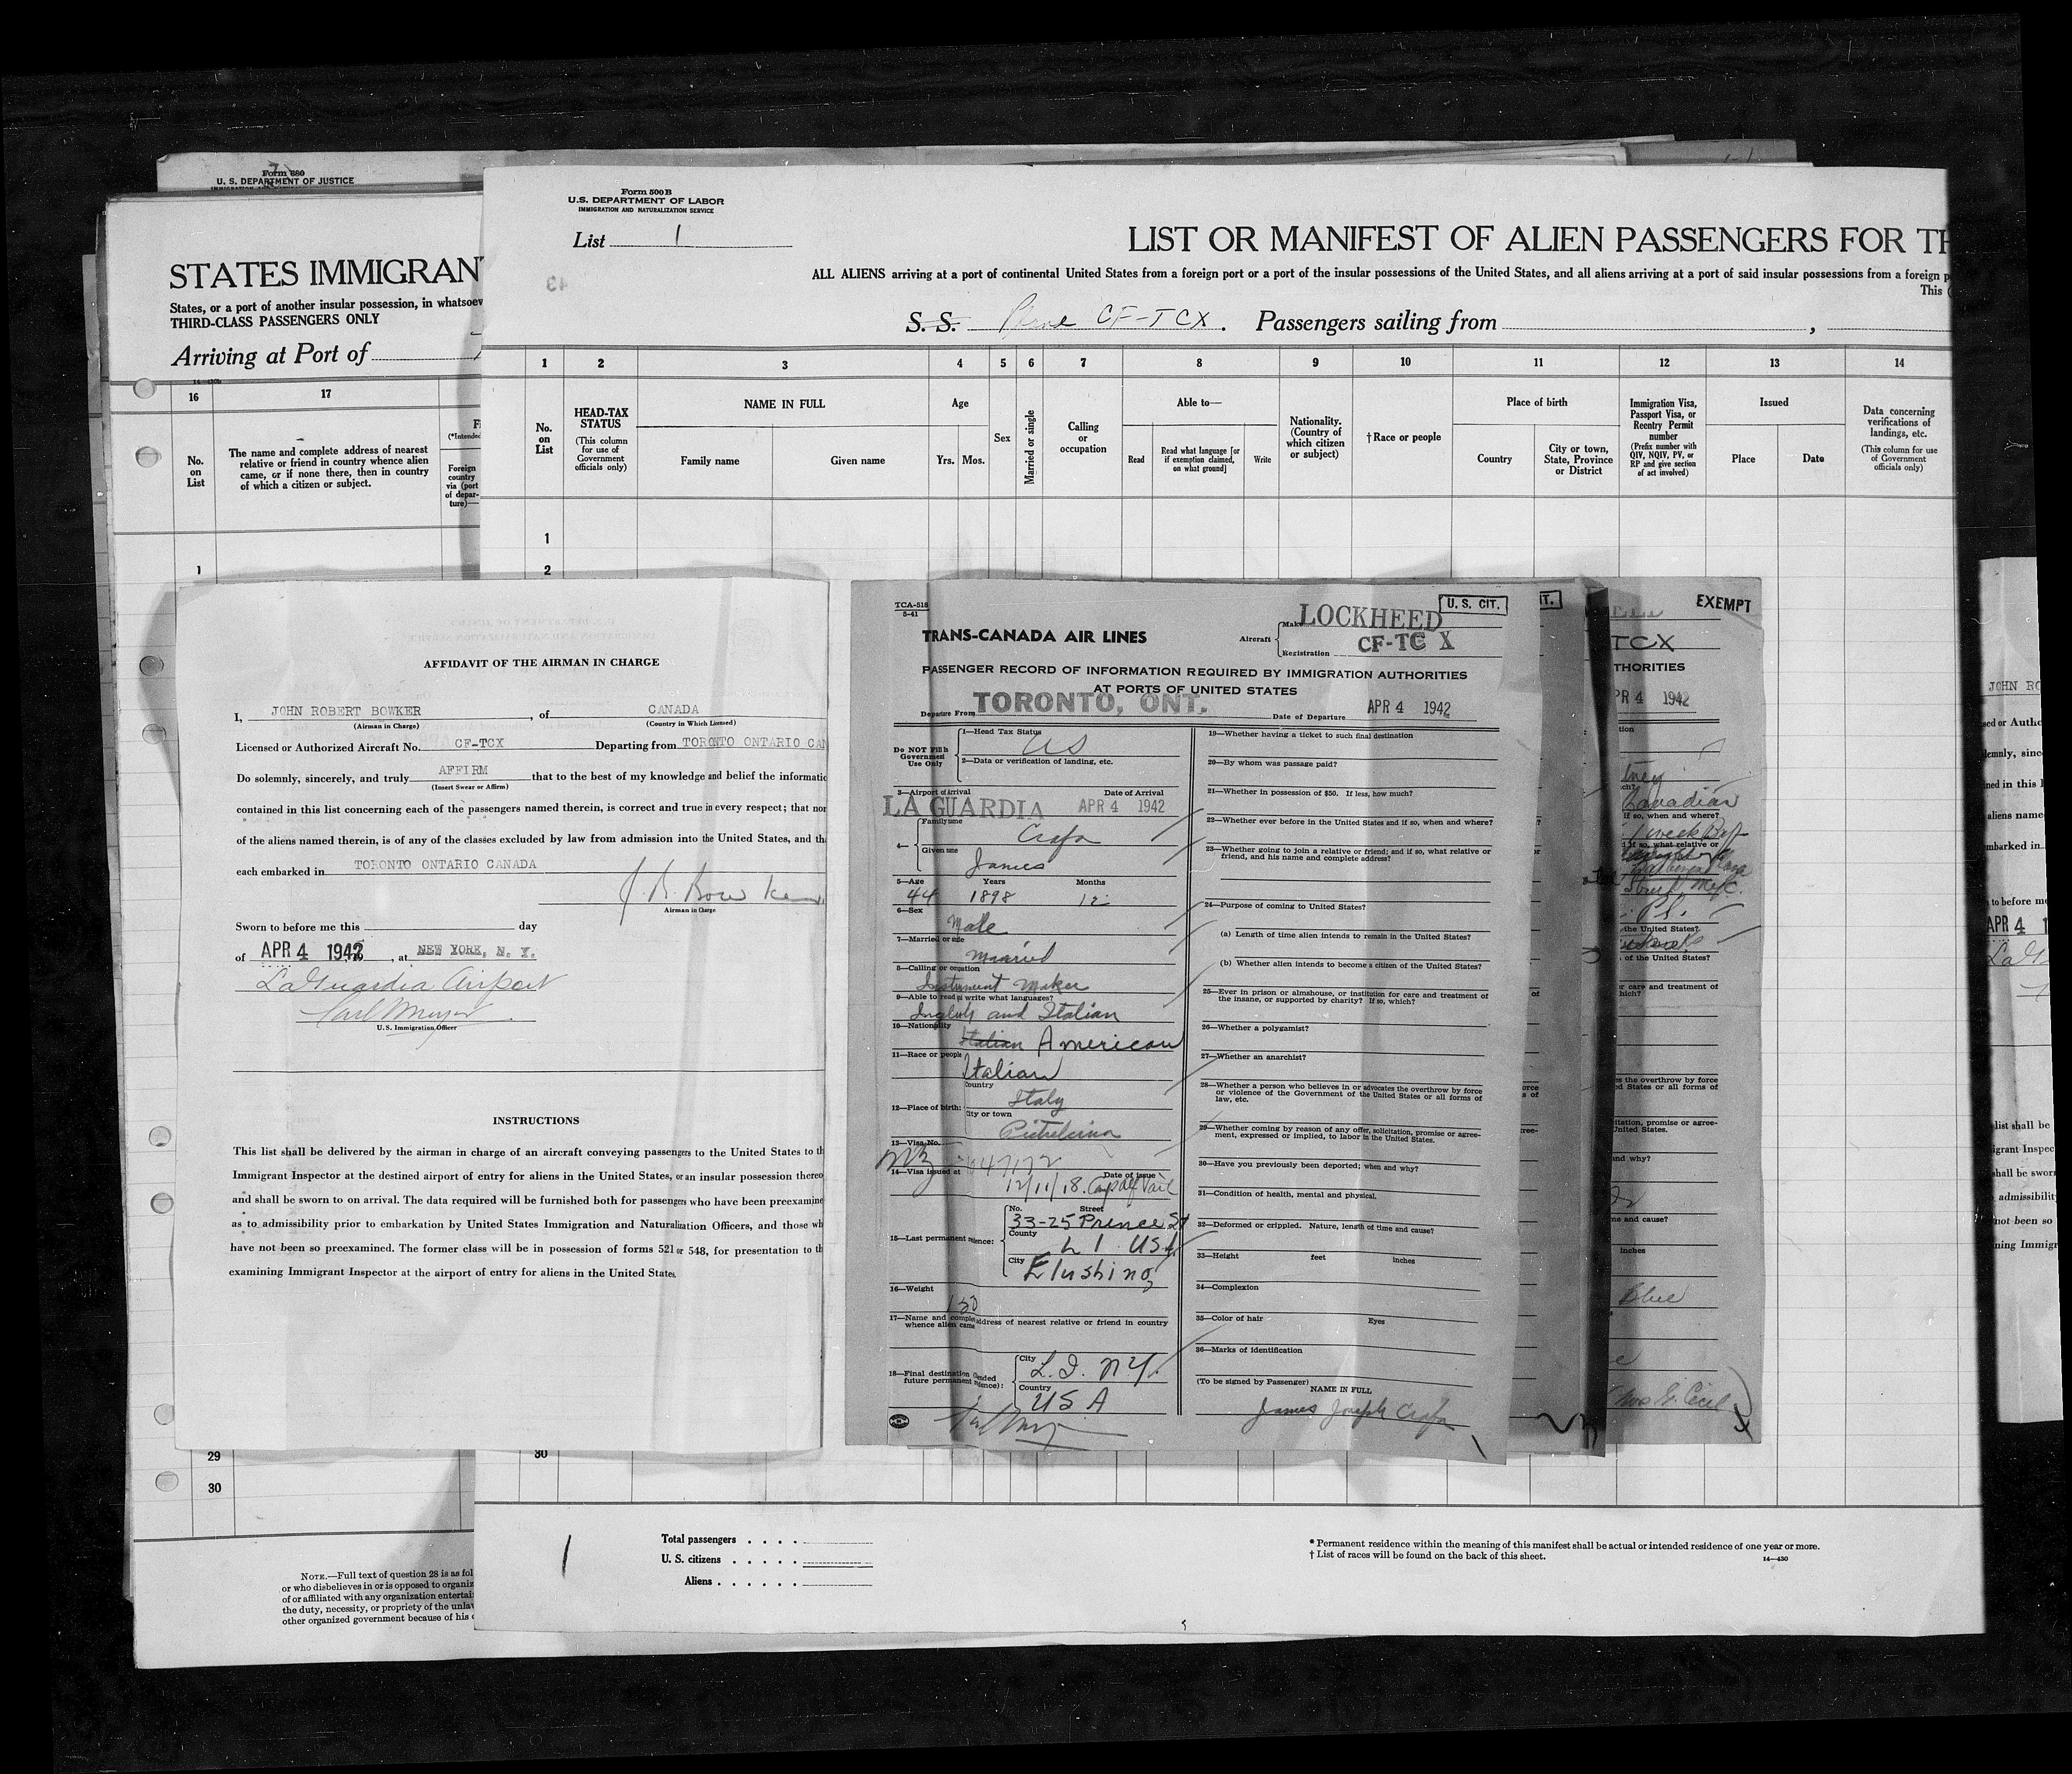 Form 680
U. S. DEPARTMENT OF JUSTICE
STATES IMMIGRAN
States, or a port of another insular possession, in whatsoev
THIRD-CLASS PASSENGERS ONLY
Arriving at Port of
16 17
No. on List
The name and complete address of nearest
relative or friend in country whence alien
came, or if none there, then in country
of which a citizen or subject.
(*Intended
Foreign
country
via (port
of depar-
ture)—
1
29
30
NOTE.—Full text of question 28 is as fol
or who disbelieves in or is opposed to organiz
of or affiliated with any organization entertai
the duty, necessity, or propriety of the unlaw
other organized government because of his
Form 500B
U.S. DEPARTMENT OF LABOR
IMMIGRATION AND NATURALIZATION SERVICE
List 1
LIST OR MANIFEST OF ALIEN PASSENGERS FOR TH
ALL ALIENS arriving at a port of continental United States from a foreign port or a port of the insular possessions of the United States, and all aliens arriving at a port of said insular possessions from a foreign p
This (
S. S. Plane CF-TCX. Passengers sailing from
1 2 3 4 5 6 7 8 9 10 11 12 13 14
No. on List
HEAD-TAX STATUS
(This column for use of Government officials only)
NAME IN FULL
Family name Given name
Age
Yrs. Mos.
Sex
Married or single
Calling or occupation
Able to—
Read
Read what language [or if exemption claimed, on what ground]
Write
Nationality. (Country of which citizen or subject)
†Race or people
Place of birth
Country
City or town, State, Province or District
Immigration Visa, Passport Visa, or Reentry Permit number
(Prefix number with QIV, NQIV, PV, or RP and give section of act involved)
Issued
Place Date
Data concerning verifications of landings, etc.
(This column for use of Government officials only)
1
2
30
1
Total passengers
U. S. citizens
Aliens
* Permanent residence within the meaning of this manifest shall be actual or intended residence of one year or more.
† List of races will be found on the back of this sheet.
14—430
AFFIDAVIT OF THE AIRMAN IN CHARGE
I, JOHN ROBERT BOWKER, of CANADA
(Airman in Charge) (Country in Which Licensed)
Licensed or Authorized Aircraft No. CF-TCX Departing from TORONTO ONTARIO CAN
Do solemnly, sincerely, and truly AFFIRM that to the best of my knowledge and belief the informatio
(Insert Swear or Affirm)
contained in this list concerning each of the passengers named therein, is correct and true in every respect; that nor
of the aliens named therein, is of any of the classes excluded by law from admission into the United States, and tha
each embarked in TORONTO ONTARIO CANADA
J. R. Bowker
Airman in Charge
Sworn to before me this day
of APR 4 1942, at NEW YORK, N. Y.
LaGuardia Airport
U.S. Immigration Officer
INSTRUCTIONS
This list shall be delivered by the airman in charge of an aircraft conveying passengers to the United States to th
Immigrant Inspector at the destined airport of entry for aliens in the United States, or an insular possession thereo
and shall be sworn to on arrival. The data required will be furnished both for passengers who have been preexamine
as to admissibility prior to embarkation by United States Immigration and Naturalization Officers, and those wh
have not been so preexamined. The former class will be in possession of forms 521 or 548, for presentation to th
examining Immigrant Inspector at the airport of entry for aliens in the United States.
TCA-518
5-41
TRANS-CANADA AIR LINES
Aircraft
Make LOCKHEED
Registration CF-TC X
U. S. CIT.
PASSENGER RECORD OF INFORMATION REQUIRED BY IMMIGRATION AUTHORITIES
AT PORTS OF UNITED STATES
Departure From TORONTO, ONT. Date of Departure APR 4 1942
Do NOT Fill in Government Use Only
1—Head Tax Status
US
2—Data or verification of landing, etc.
3—Airport of Arrival Date of Arrival
LA GUARDIA APR 4 1942
4—
Family name
Crafa
Given name
James
5—Age Years Months
44 1898 12
6—Sex
Male
7—Married or single
Married
8—Calling or occupation
Instrument Maker
9—Able to read or write what languages?
English and Italian
10—Nationality
Italian American
11—Race or people
Italian
12—Place of birth:
Country
Italy
City or town
Pietrelcina
13—Visa No.
14—Visa issued at Date of issue
12/11/18.
15—Last permanent residence:
No. Street
33-25 Prince St
County
L I USA
City
Flushing
16—Weight
150
17—Name and complete address of nearest relative or friend in country
whence alien came
18—Final destination (Intended
future permanent residence):
City
L.I. N.Y.
Country
USA
19—Whether having a ticket to such final destination
20—By whom was passage paid?
21—Whether in possession of $50. If less, how much?
22—Whether ever before in the United States and if so, when and where?
23—Whether going to join a relative or friend; and if so, what relative or
friend, and his name and complete address?
24—Purpose of coming to United States?
(a) Length of time alien intends to remain in the United States?
(b) Whether alien intends to become a citizen of the United States?
25—Ever in prison or almshouse, or institution for care and treatment of
the insane, or supported by charity? If so, which?
26—Whether a polygamist?
27—Whether an anarchist?
28—Whether a person who believes in or advocates the overthrow by force
or violence of the Government of the United States or all forms of
law, etc.
29—Whether coming by reason of any offer, solicitation, promise or agree-
ment, expressed or implied, to labor in the United States.
30—Have you previously been deported; when and why?
31—Condition of health, mental and physical.
32—Deformed or crippled. Nature, length of time and cause?
33—Height feet inches
34—Complexion
35—Color of hair Eyes
36—Marks of identification
(To be signed by Passenger)
NAME IN FULL
James Joseph Crafa
IT.
EXEMPT
TCX
THORITIES
PR 4 1942
Canadian
if so, when and where?
1 week
if so, what relative or
the United States?
of the United States?
r care and treatment of
hich?
es the overthrow by force
ed States or all forms of
itation, promise or agree-
United States.
and why?
me and cause?
inches
Blue
Cecil
JOHN RO
sed or Autho
lemnly, since
ned in this l
aliens name
mbarked in
to before me
APR 4 1
LaG
list shall be
igrant Inspec
shall be swor
admissibilit
not been so
ning Immigr